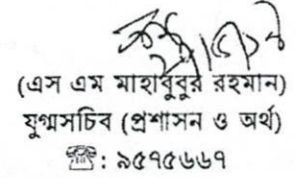 (এস এম মাহাবুবুর রহমান)
যুগ্মসচিব (প্রশাসন ও অর্থ)
☎: ৯৫৭৫৬৬৭